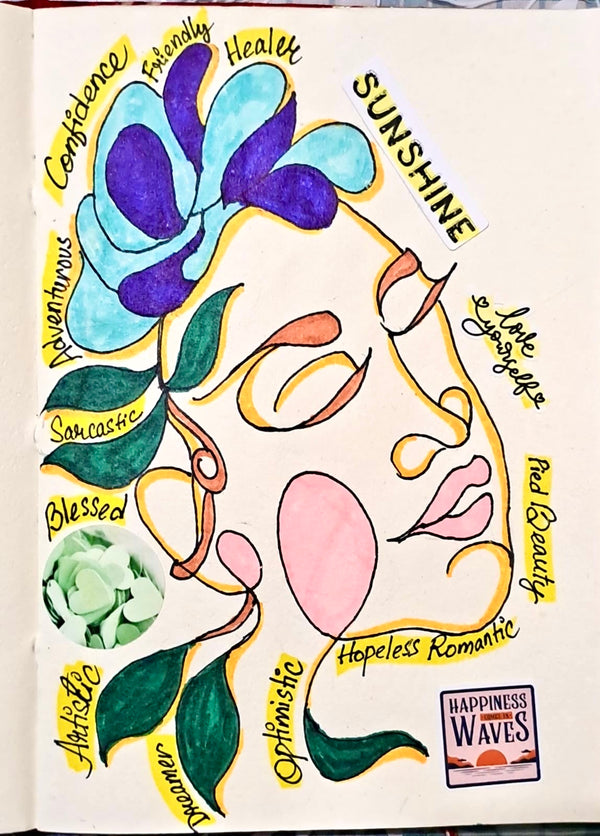 Friendly
Healer
Confidence
SUNSHINE
Adventurous
love
yourself
Sarcastic
Pied Beauty
Blessed
Hopeless Romantic
Artistic
Optimistic
Dreamer
HAPPINESS
COMES IN
WAVES